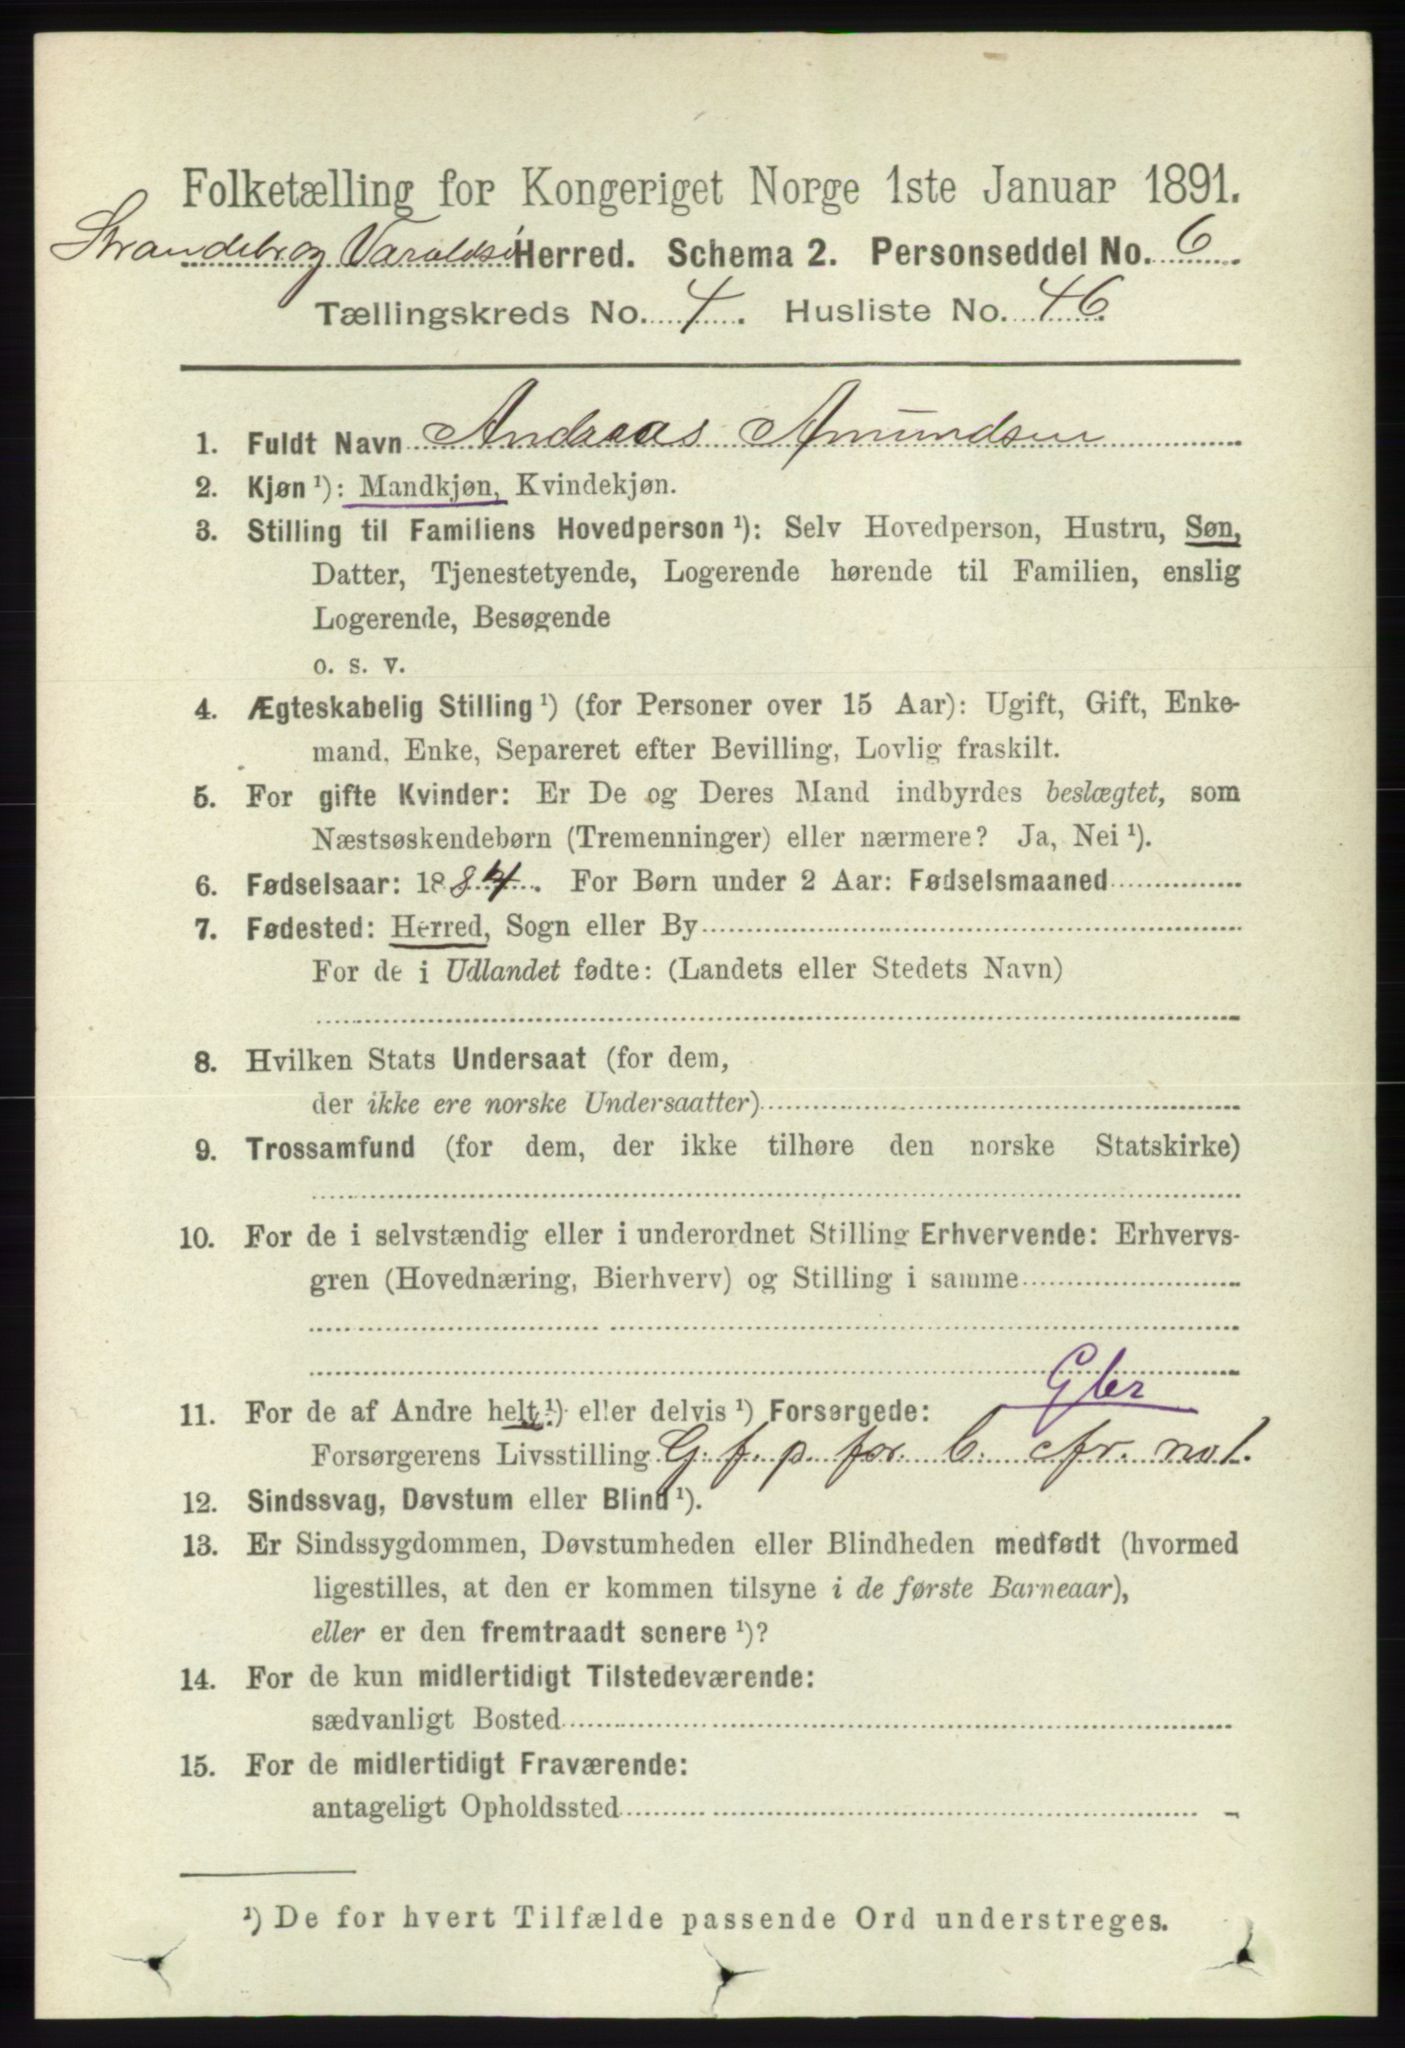 Folketælling for Kongeriget Norge 1ste Januar 1891.
Strandeb. og Varaldsø Herred. Schema 2. Personseddel No. 6
Tællingskreds No. 4. Husliste No. 46
1. Fuldt Navn Andreas Amundsen
2. Kjøn ¹): Mandkjøn, Kvindekjøn.
3. Stilling til Familiens Hovedperson ¹): Selv Hovedperson, Hustru, Søn,
Datter, Tjenestetyende, Logerende hørende til Familien, enslig
Logerende, Besøgende
o. s. v.
4. Ægteskabelig Stilling ¹) (for Personer over 15 Aar): Ugift, Gift, Enke-
mand, Enke, Separeret efter Bevilling, Lovlig fraskilt.
5. For gifte Kvinder: Er De og Deres Mand indbyrdes beslægtet, som
Næstsøskendebørn (Tremenninger) eller nærmere? Ja, Nei ¹).
6. Fødselsaar: 1884. For Børn under 2 Aar: Fødselsmaaned
7. Fødested: Herred, Sogn eller By
For de i Udlandet fødte: (Landets eller Stedets Navn)
8. Hvilken Stats Undersaat (for dem,
der ikke ere norske Undersaatter)
9. Trossamfund (for dem, der ikke tilhøre den norske Statskirke)
10. For de i selvstændig eller i underordnet Stilling Erhvervende: Erhvervs-
gren (Hovednæring, Bierhverv) og Stilling i samme
Gbr
11. For de af Andre helt ¹) eller delvis ¹) Forsørgede:
Forsørgerens Livsstilling G. f. p. for. b. cfr. no 1.
12. Sindssvag, Døvstum eller Blind ¹).
13. Er Sindssygdommen, Døvstumheden eller Blindheden medfødt (hvormed
ligestilles, at den er kommen tilsyne i de første Barneaar),
eller er den fremtraadt senere ¹)?
14. For de kun midlertidigt Tilstedeværende:
sædvanligt Bosted
15. For de midlertidigt Fraværende:
antageligt Opholdssted
¹) De for hvert Tilfælde passende Ord understreges.